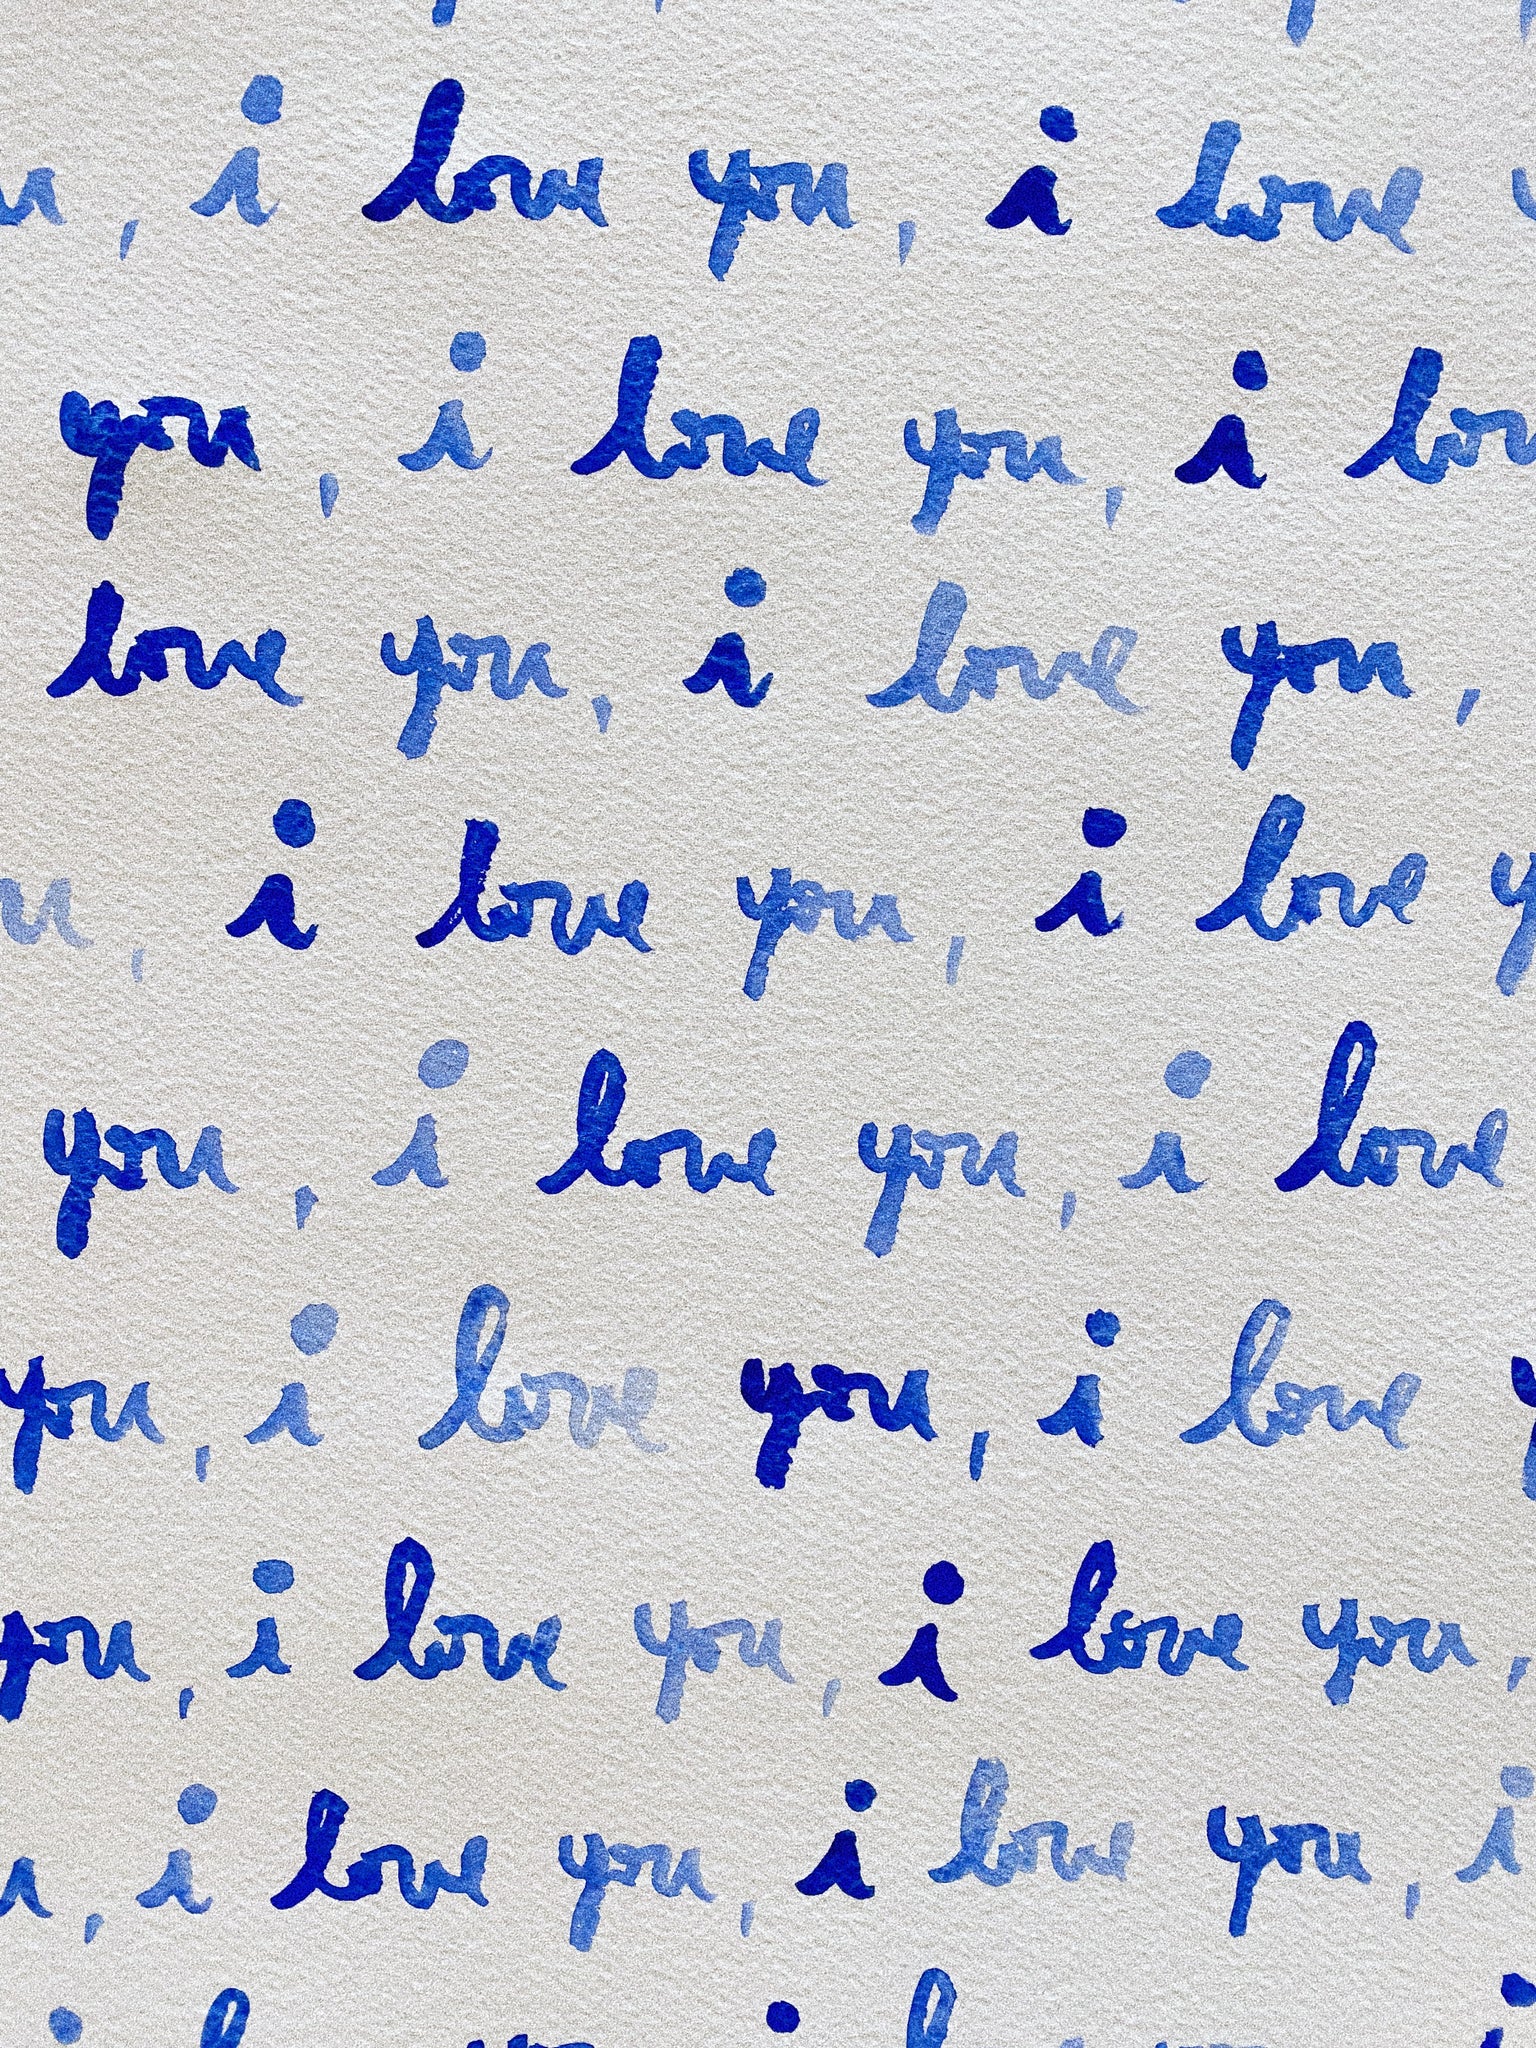 , i love you, i love
you, i love you, i lov
love you, i love you,
u, i love you, i love y
you, i love you, i love
you, i love you, i love
you, i love you, i love you,
, i love you, i love you, i